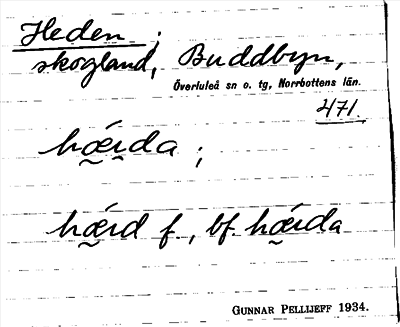 Heden ;
skogland, Buddbyn,
Överluleå sn o. tg, Norrbottens län.
471.
hǽ̰rda ;
hǽ̰rd f., bf. hǽ̰rda
GUNNAR PELLIJEFF 1934.